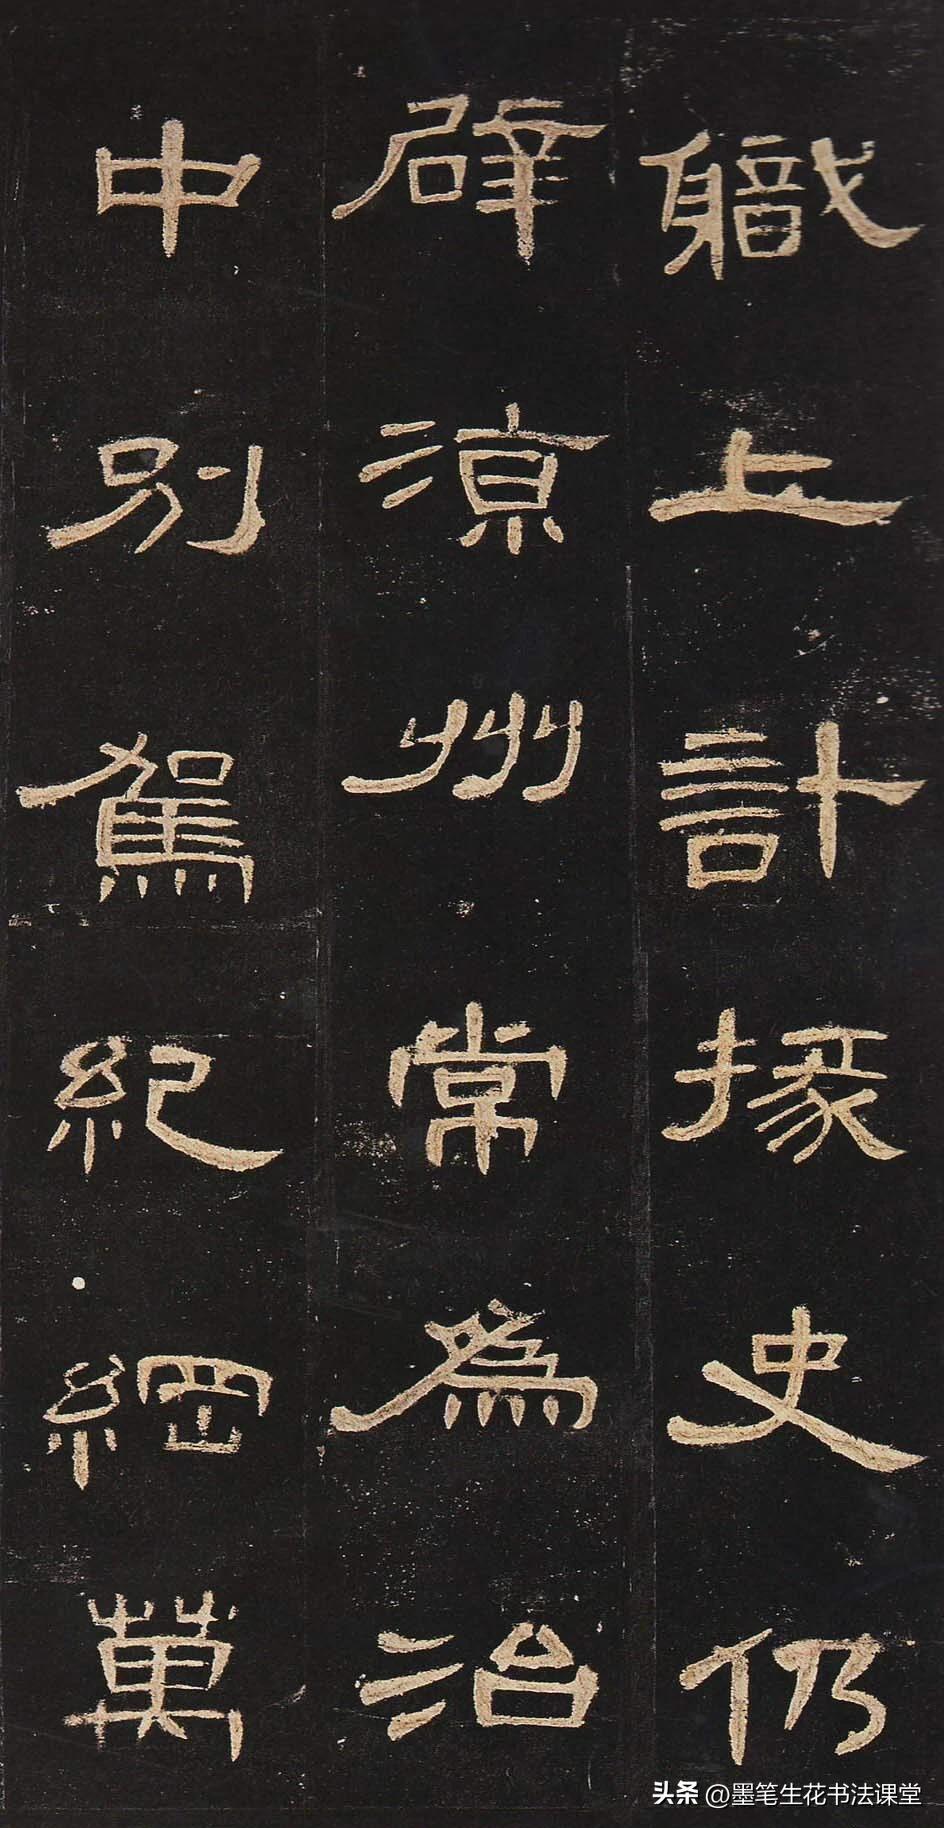 職上計掾史仍
辟涼州常為治
中別駕紀綱萬
头条 @墨笔生花书法课堂